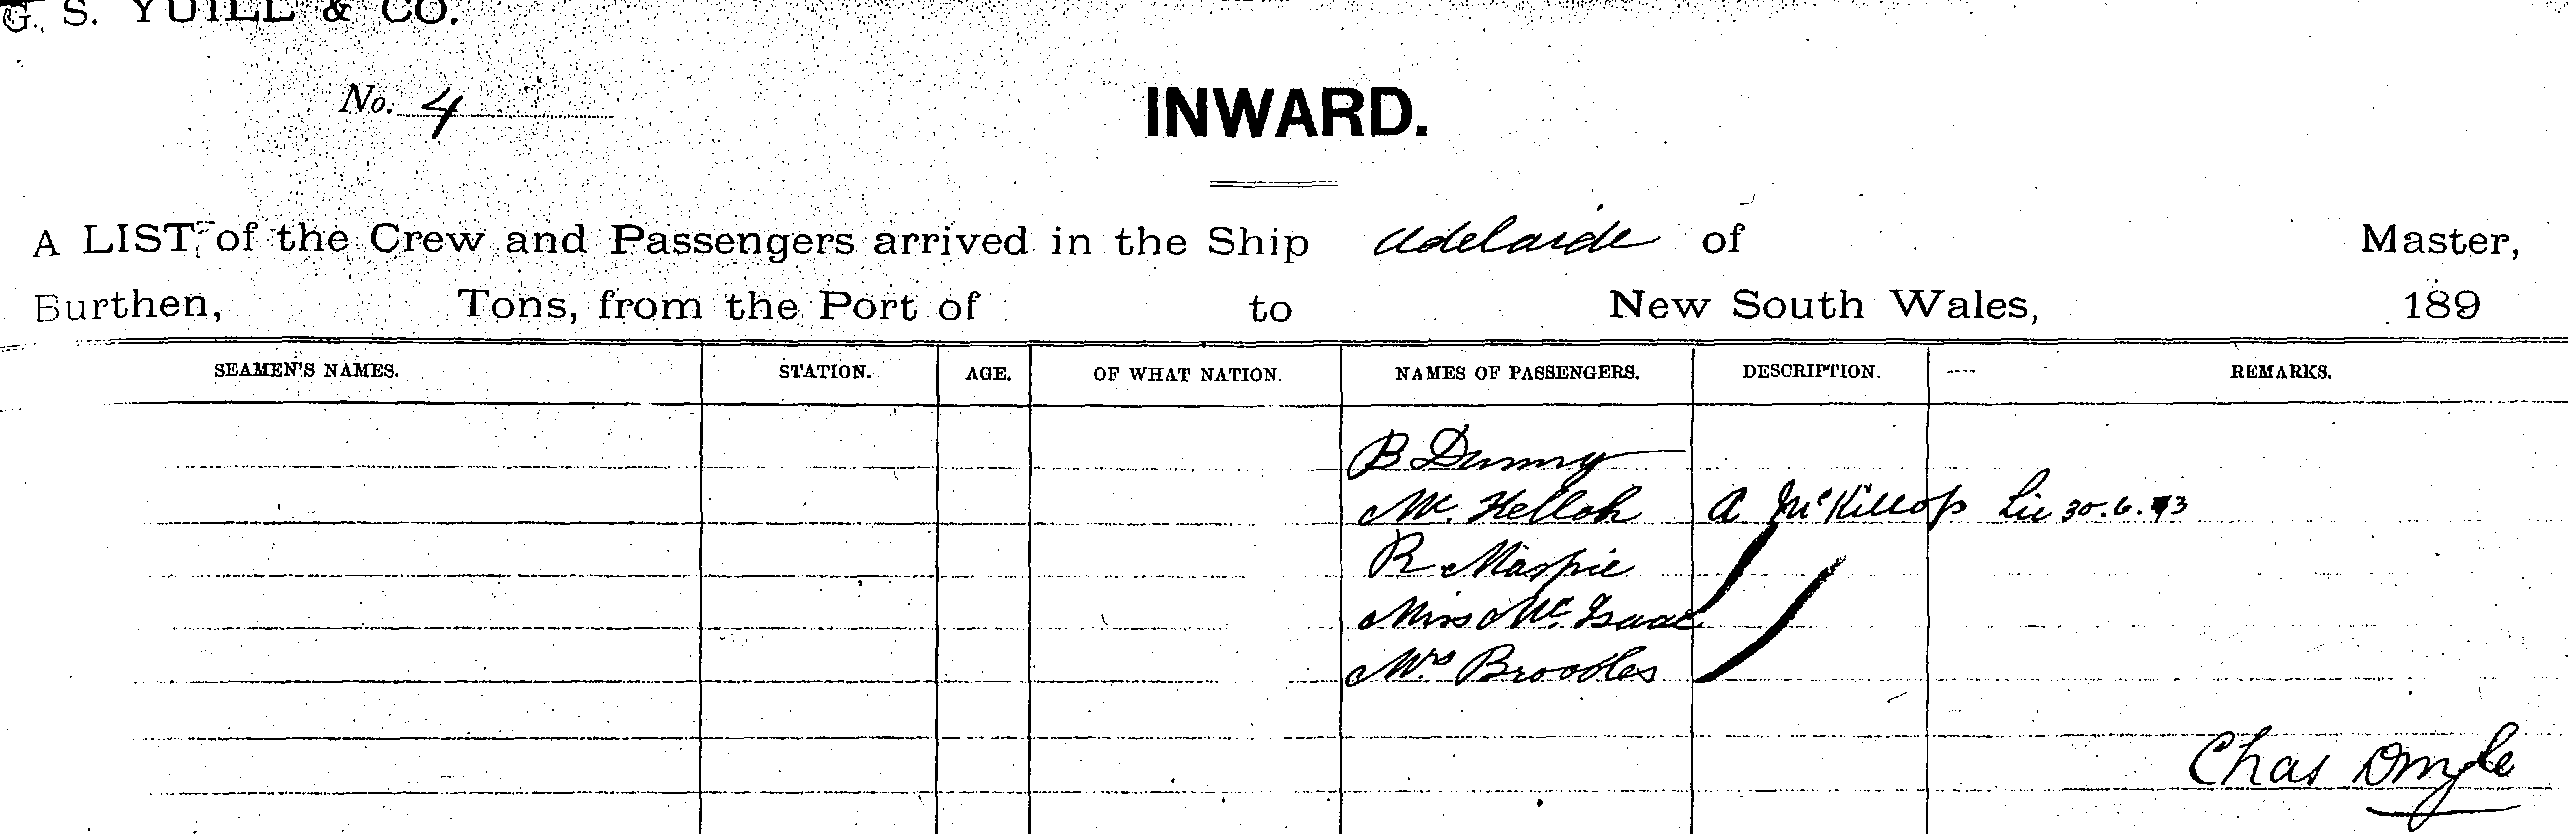 G. S. YUILL & CO.
No. 4
INWARD.
A LIST of the Crew and Passengers arrived in the Ship Adelaide of Master,
Burthen, Tons, from the Port of to New South Wales, 189
SEAMEN'S NAMES. STATION. AGE. OF WHAT NATION. NAMES OF PASSENGERS. DESCRIPTION. REMARKS.
B
Mr. A McKillop Lic 30.6.93
R
Miss McIsaac
Mrs
Chas